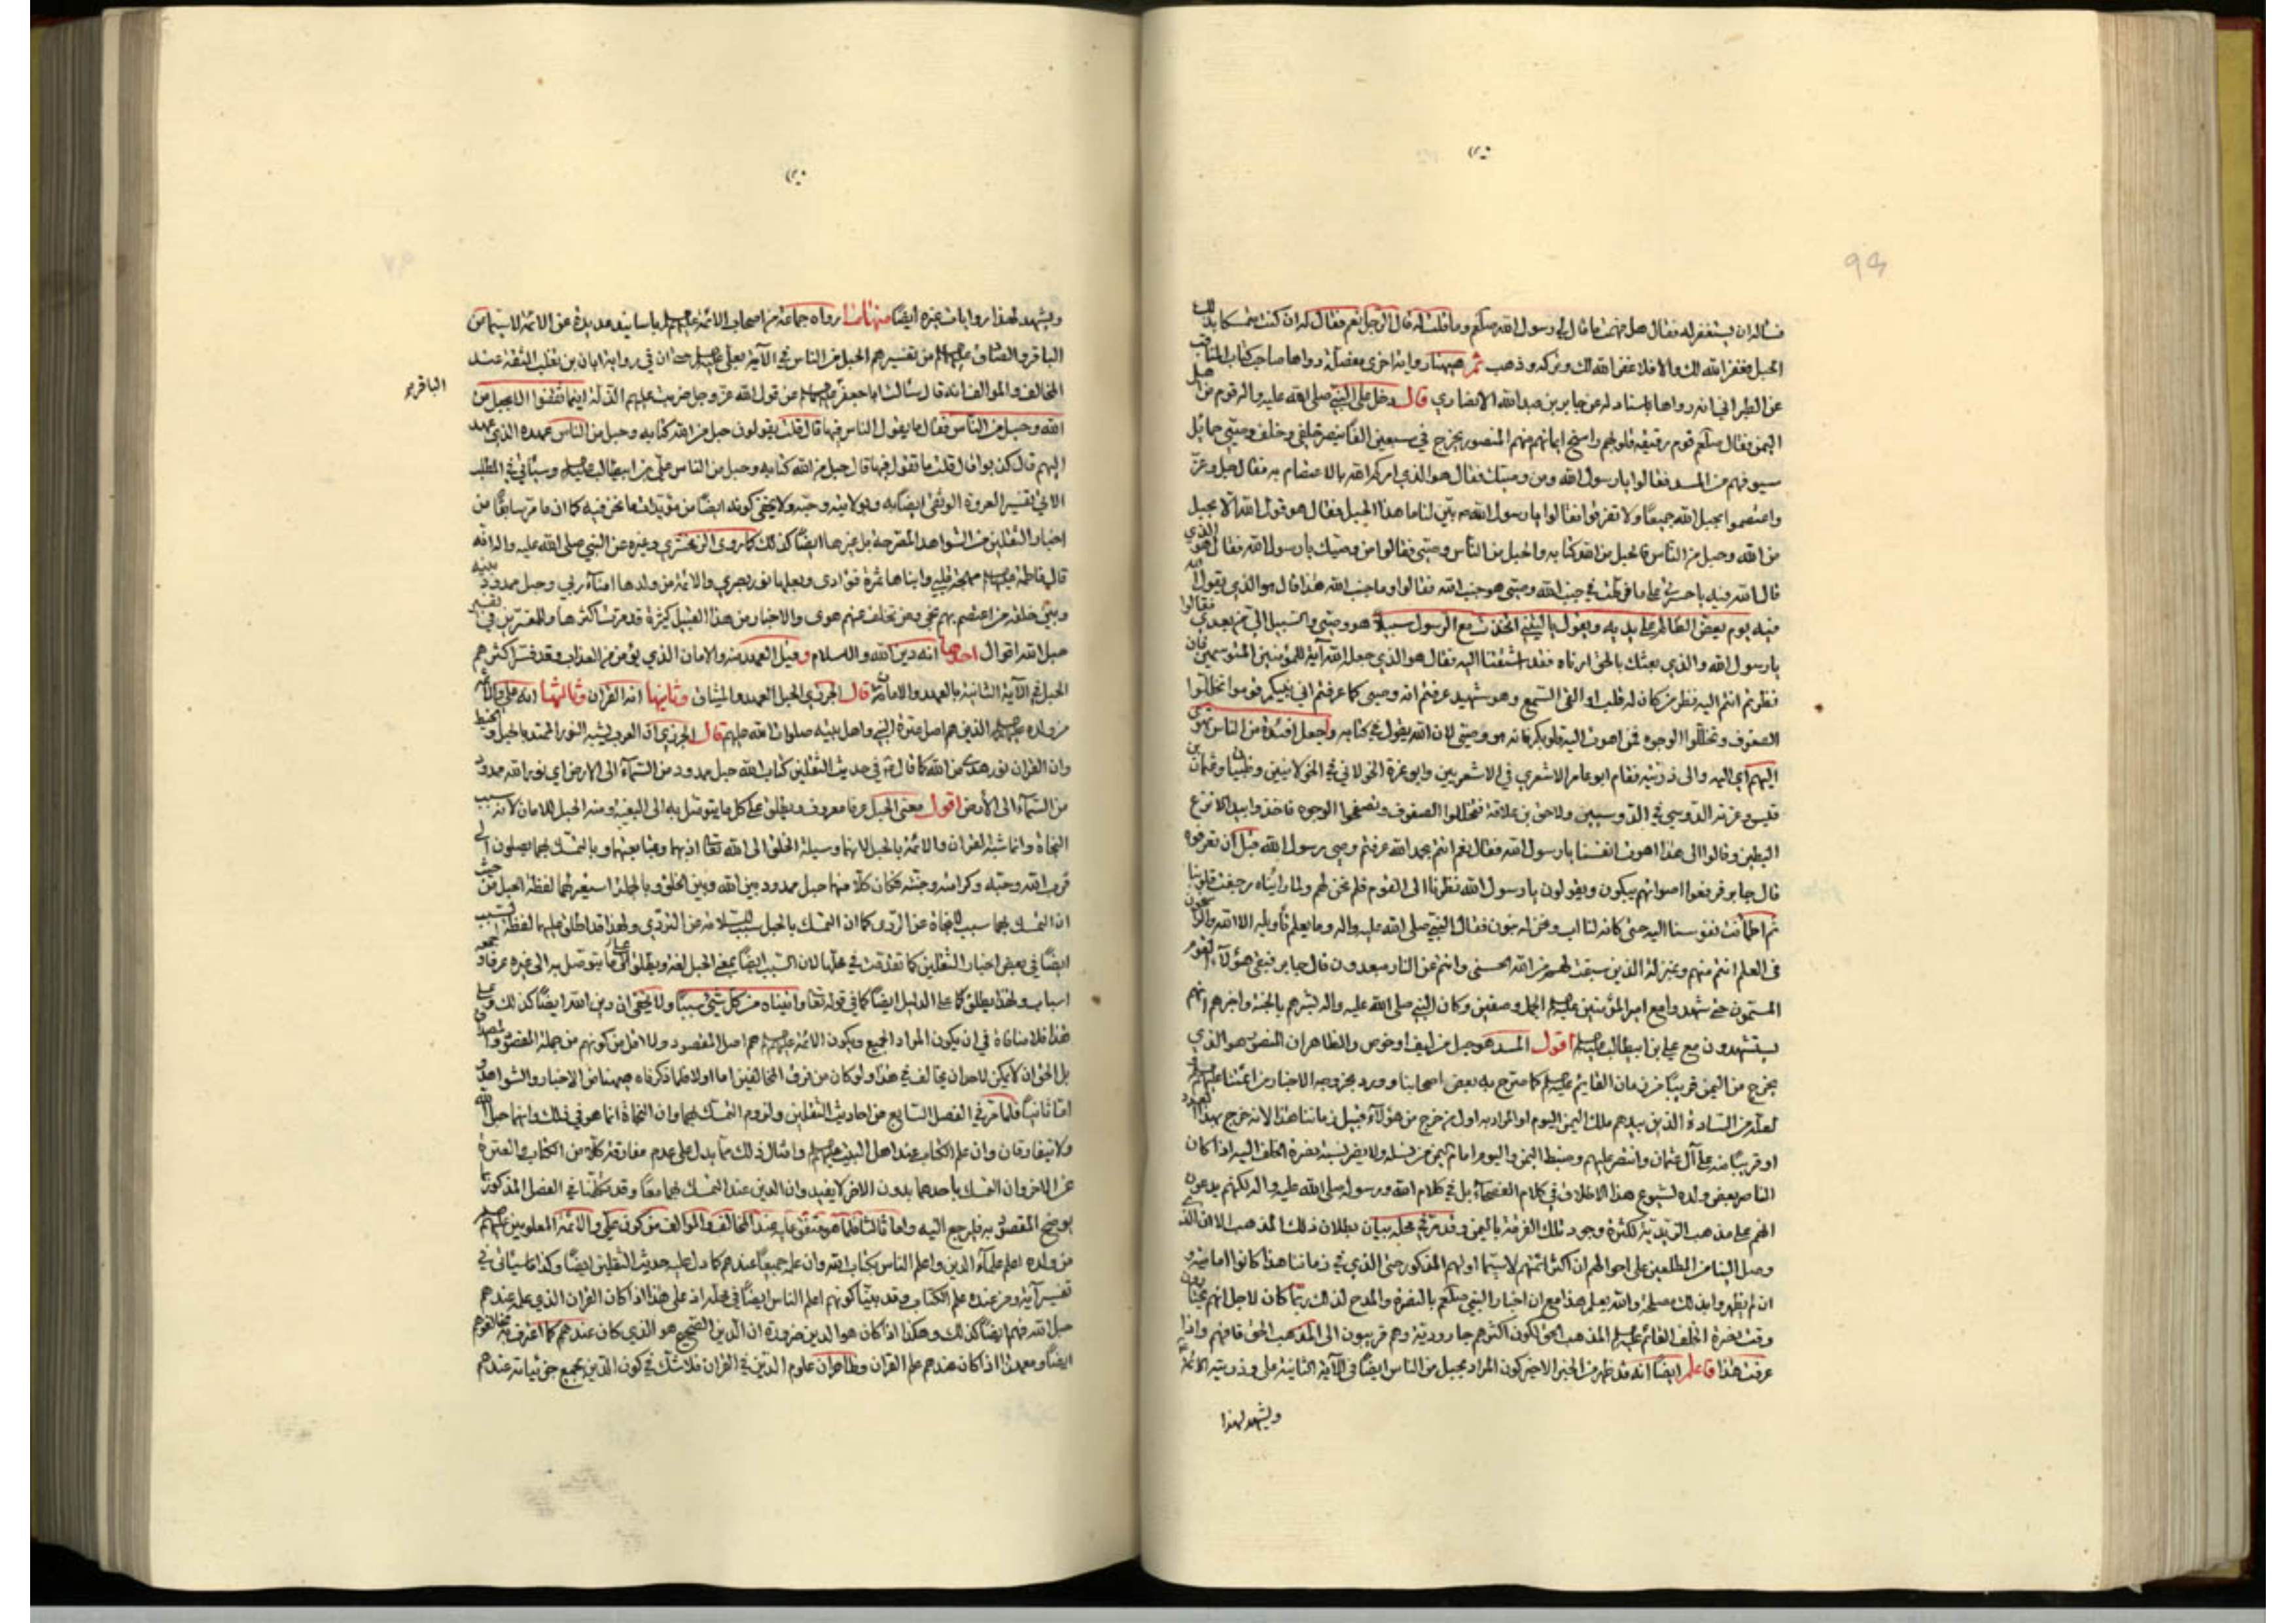 فسأله ان يستغفر له فقال هل فهمت ما قال لي رسول الله صلعم وما قلت له قال الرجل نعم فقال له ان كنت متمسكا بذلك
الحبل فغفر الله لك والا فلا غفر الله لك وتركه وذهب ثم ههنا رواية اخرى مفصلة رواها صاحب كتاب المناقب
عن الطبراني انه رواها باسناد له عن جابر بن عبد الله الانصاري قال دخل على النبي صلى الله عليه واله قوم من اهل
اليمن فقال صلعم قوم رقيقة قلوبهم راسخ ايمانهم منهم المنصور يخرج في سبعين الفا ينصر خلفي وخلف وصيتي حمائل
سيوفهم من المسد فقالوا يا رسول الله ومن وصيك فقال هو الذي امركم الله بالاعتصام به فقال جل وعز
واعتصموا بحبل الله جميعا ولا تفرقوا فقالوا يا رسول الله بين لنا ما هذا الحبل فقال هو قول الله الا بحبل
من الله وحبل من الناس فالحبل من الله كتابه والحبل من الناس وصيي فقالوا من وصيك يا رسول الله فقال هو الذي
قال الله فيه يا حسرتى على ما فرطت في جنب الله وصيي هو جنب الله فقالوا وما جنب الله هذا قال هو الذي يقول الله
فيه يوم يعض الظالم على يديه ويقول يا ليتني اتخذت مع الرسول سبيلا هو وصيي والسبيل الي من بعدي فقالوا
يا رسول الله والذي بعثك بالحق ارناه فقد اشتقنا اليه فقال هو الذي جعل الله آية للمؤمنين المتوسمين فان
نظرتم انتم اليه نظر من كان له قلب او القى السمع وهو شهيد عرفتم انه وصيي كما عرفتم اني نبيكم قوموا تخللوا
الصفوف وتخللوا الوجوه فمن اهوت اليه قلوبكم فانه هو وصيي لان الله يقول في كتابه واجعل افئدة من الناس تهوي
اليهم اي اليه والى ذريته فقام ابو عامر الاشعري في الاشعريين وابو غرة الخولاني في الخولانيين وظبيان وعثمان بن
قيس وعرنة الدوسي في الدوسيين ولاحق بن علاقة فتخللوا الصفوف وتصفحوا الوجوه فاخذوا بيد الانزع
البطين وقالوا الى هذا اهوت انفسنا يا رسول الله فقال نعم انتم بحمد الله عرفتم وصي رسول الله قبل ان تعرفوه
قال جابر فرفعوا اصواتهم يبكون ويقولون يا رسول الله نظرنا الى القوم فلم نحن لهم ولما رايناه رجفت قلوبنا
ثم اطمأنت نفوسنا اليه حتى كانه لنا اب ونحن له بنون فقال النبي صلى الله عليه واله وما يعلم تأويله الا الله والراسخون
في العلم انتم منهم وبمنزلة الذين سبقت لهم من الله الحسنى وانتم عن النار مبعدون قال جابر فبقي هؤلاء القوم
المسمون حتى شهدوا مع امير المؤمنين عليه السلام الجمل وصفين وكان النبي صلى الله عليه واله بشرهم بالجنة واخبرهم انهم
يستشهدون مع علي بن ابي طالب عليه السلام اقول المسد هو حبل من ليف او خوص والظاهر ان المنصور هو الذي
يخرج من اليمن قريبا من زمان القائم عليه السلام كما صرح به بعض اصحابنا وورد بخروجه الاخبار من ائمتنا عليهم السلام
لعله من السادة الذين بيدهم ملك اليمن اليوم او المراد به اول من خرج من هؤلاء قبيل زماننا هذا لانه خرج بهذا العدد
او قريبا منه على آل عثمان وانتصر عليهم وضبط اليمن واليوم امام اليمن من نسله ولا يضر نسبة نصرة الخلف اليه اذا كان
الناصر بعض ولده لشيوع هذا الاطلاق في كلام الفصحاء بل في كلام الله ورسوله صلى الله عليه واله لكنهم يدعون
انهم على مذهب الزيدية لكثرة وجود تلك الفرقة باليمن وقد مر في محله بيان بطلان ذلك المذهب الا ان الذي
وصل الينا من المطلعين على احوالهم ان اكثر ائمتهم لاسيما اولهم المذكور حتى الذي في زماننا هذا كانوا امامية و
ان لم يظهروا ذلك مصلحة والله يعلم هذا مع ان اخبار النبي صلعم بالنصرة والمدح لذلك ربما كان لاجل انهم يجيبون
وقت نصرة الخلف القائم عليه السلام المذهب الحق لكون اكثرهم جارودية وهم قريبون الى المذهب الحق فافهم واذا
عرفت هذا فاعلم ايضا انه قد ظهر من الخبر الاخير كون المراد بحبل من الناس ايضا في الآية الثانية علي وذريته الائمة
ويشهد لهذا
ويشهد لهذا روايات غيره ايضا منها ما رواه جماعة من اصحاب الائمة عليهم السلام باسانيد عديدة عن الائمة لاسيما عن
الباقر والصادق عليهما السلام من تفسيرهم الحبل من الناس في الآية بعلي عليه السلام حتى ان في رواية ابان بن تغلب الثقة عند
المخالف والموالف انه قال سألت ابا جعفر عليه السلام عن قول الله عز وجل ضربت عليهم الذلة اينما ثقفوا الا بحبل من
الباقر
الله وحبل من الناس فقال ما يقول الناس فيها قال قلت يقولون حبل من الله كتابه وحبل من الناس عهده الذي عهد
اليهم قال كذبوا قال قلت ما تقول فيها قال حبل من الله كتابه وحبل من الناس علي بن ابي طالب عليه السلام وسيأتي في المطلب
الاتي تفسير العروة الوثقى ايضا به وبولايته وحبه ولا يخفى كونه ايضا من مؤيدات ما نحن فيه كما ان ما مر سابقا من
اخبار الثقلين من الشواهد المصرحة بل غيرها ايضا كذلك كما روى الزمخشري وغيره عن النبي صلى الله عليه واله انه
قال فاطمة عليها السلام مهجة قلبي وابناها ثمرة فؤادي وبعلها نور بصري والائمة من ولدها امناء ربي وحبل ممدود بينه
وبين خلقه من اعتصم بهم نجى ومن تخلف عنهم هوى والاخبار من هذا القبيل كثيرة قد مرت اكثرها وللمفسرين في تفسير
حبل الله اقوال احدها انه دين الله والاسلام وقيل العهد منه والامان الذي يؤمن من العذاب وقد فسر اكثرهم
الحبل في الآية الثانية بالعهد والامان قال الجزري الحبل العهد والميثاق وثانيها انه القران وثالثها انه علي والائمة
من ولده عليهم السلام الذين هم اصل عترة النبي واهل بيته صلوات الله عليهم قال الجزري ان العرب يشبه النور الممتد بالحبل والخيط
وان القران نور هدى من الله كما قال في حديث الثقلين كتاب الله حبل ممدود من السماء الى الارض اي نور الله ممدود
من السماء الى الارض اقول معنى الحبل عرفا معروف ويطلق على كل ما يتوصل به الى البغية ومنه الحبل للامان لانه سبب
النجاة وانما شبه القران والائمة بالحبل لانهما وسيلة الخلق الى الله تعالى اذ بهما وبمتابعتهما وبالتمسك بهما يصلون الى
قرب الله وحبه وكرامته وجنته فكان كلا منهما حبل ممدود بين الله وبين الخلق وبالجملة استعير لهما لفظة الحبل من حيث
ان التمسك بهما سبب للنجاة عن الردى كما ان التمسك بالحبل سبب للسلامة عن التردي ولهذا قد اطلق عليهما لفظة السبب
ايضا في بعض اخبار الثقلين كما تقدمت في محلها لان السبب ايضا بمعنى الحبل لغة ويطلق على ما يتوصل به الى غيره عرفا وجمعه
اسباب ولهذا يطلق على الدليل ايضا كما في قوله تعالى واتيناه من كل شئ سببا ولا يخفى ان دين الله ايضا كذلك وعلى
هذا فلا منافاة في ان يكون المراد الجميع ويكون الائمة عليهم السلام هم اصل المقصود ولا اقل من كونهم من جملة المقصود والمصداق
بل الحق ان لا يمكن لاحد ان يخالف في هذا ولو كان من فرق المخالفين اما اولا فلما ذكرناه ههنا من الاخبار والشواهد و
اما ثانيا فلما مر في الفصل السابع من احاديث الثقلين ولزوم التمسك بهما وان النجاة انما هو في ذلك وانهما حبل الله
ولا يتفارقان وان علم الكتاب عند اهل البيت عليهم السلام وامثال ذلك مما يدل على عدم مفارقة كلا من الكتاب والعترة
عن الاخر وان التمسك باحدهما بدون الاخر لا يفيد وان الدين عند التمسك بهما معا وقد تكلمنا في الفصل المذكور بما
يوضح المقصود به فليرجع اليه واما ثالثا فلما هو متفق عليه عند المخالف والموالف من كون علي والائمة المعلومين عليهم السلام
من ولده اعلم علماء الدين واعلم الناس بكتاب الله وان علمه جميعا عندهم كما دل عليه حديث الثقلين ايضا وكذا ما سيأتي في
تفسير آية ومن عنده علم الكتاب وقد بينا كونهم اعلم الناس ايضا في محله اذ على هذا اذا كان القران الذي علمه عندهم
حبل الله فهم ايضا كذلك وهكذا اذا كان هو الدين ضرورة ان الدين الصحيح هو الذي كان عندهم كما اعترف به مخالفوهم
ايضا ومعهذا اذا كان عندهم علم القران وظاهر ان علوم الدين في القران فلا شك في كون الدين بجميع جزئياته عندهم